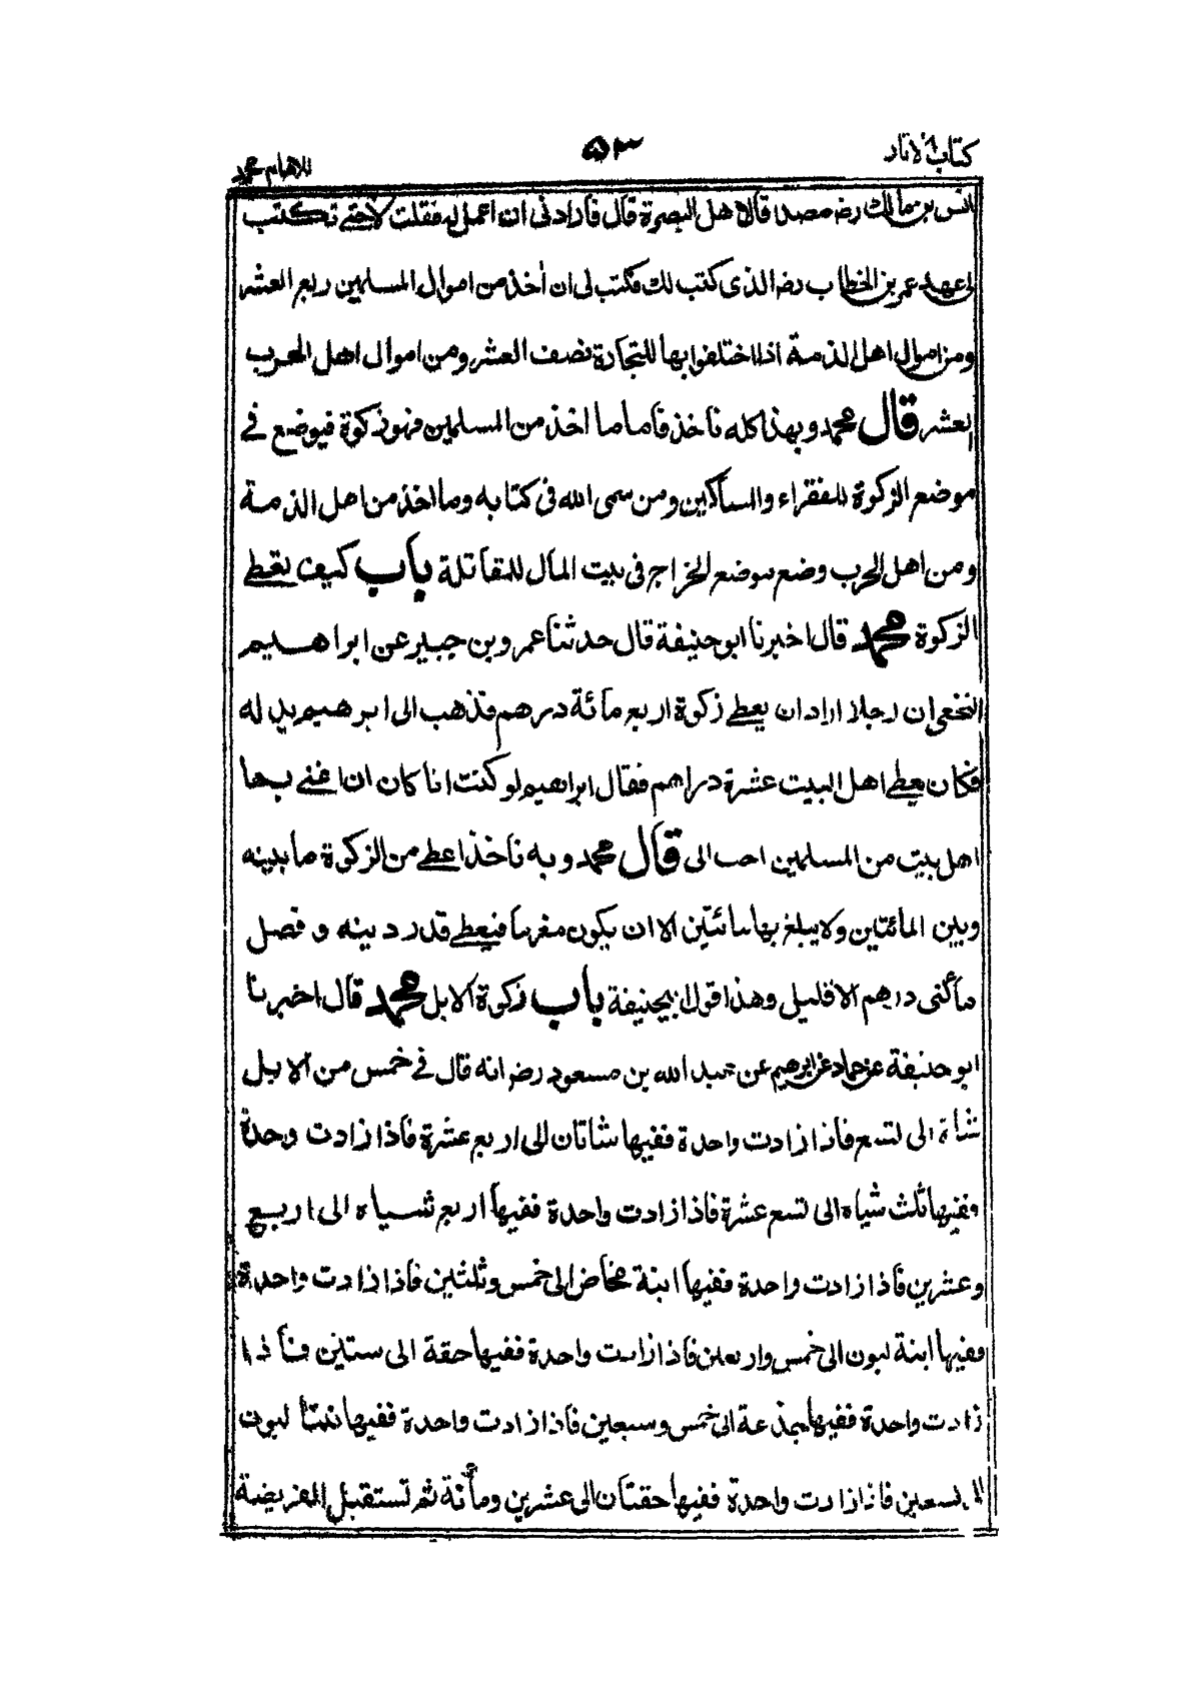 كتاب الآثار ۵۳ للامام محمد
انس بن مالك رضه مصدقا لاهل البصرة قال فأرادنى ان اعمل له فقلت لا حتى تكتب
لى عهد عمر بن الخطاب رضه الذى كتب لك فكتب لى ان أخذ من اموال المسلمين ربع العشر
ومن اموال اهل الذمة اذا اختلفوا بها للتجارة نصف العشر ومن اموال اهل الحرب
العشر قال محمد وبهذا كله ناخذ فاما ما اخذ من المسلمين فهو زكوة فيوضع فى
موضع الزكوة للفقراء والمساكين ومن سمى الله فى كتابه وما اخذ من اهل الذمة
ومن اهل الحرب وضع موضع الخراج فى بيت المال للمقاتلة باب كيف يعطى
الزكوة محمد قال اخبرنا ابو حنيفة قال حدثنا عمرو بن جبير عن ابراهيم
النخعى ان رجلا اراد ان يعطى زكوة اربع مائة درهم فذهب الى ابرهيم يدل له
فكان يعطى اهل البيت عشرة دراهم فقال ابراهيم لو كنت انا كان ان اغنى بها
اهل بيت من المسلمين احب الى قال محمد وبه ناخذ اعطى من الزكوة ما بينه
وبين المائتين ولا يبلغ بها مائتين الا ان يكون مغرما فيعطى قدر دينه و فصل
مأتى درهم الا قليل وهذا قول ابيحنيفة باب زكوة الابل محمد قال اخبرنا
ابو حنيفة عن حماد عن ابرهيم عن عبد الله بن مسعود رضه انه قال فى خمس من الابل
شاة الى تسع فاذا زادت واحدة ففيها شاتان الى اربع عشرة فاذا زادت وحدة
ففيها ثلث شياه الى تسع عشرة فاذا زادت واحدة ففيها اربع شياه الى اربع
وعشرين فاذا زادت واحدة ففيها ابنة مخاض الى خمس وثلثين فاذا زادت واحدة
ففيها ابنة لبون الى خمس واربعين فاذا زادت واحدة ففيها حقة الى ستين فاذا
زادت واحدة ففيها جذعة الى خمس وسبعين فاذا زادت واحدة ففيها بنتا لبون
الى تسعين فاذا زادت واحدة ففيها حقتان الى عشرين ومأئة ثم تستقبل الفريضة